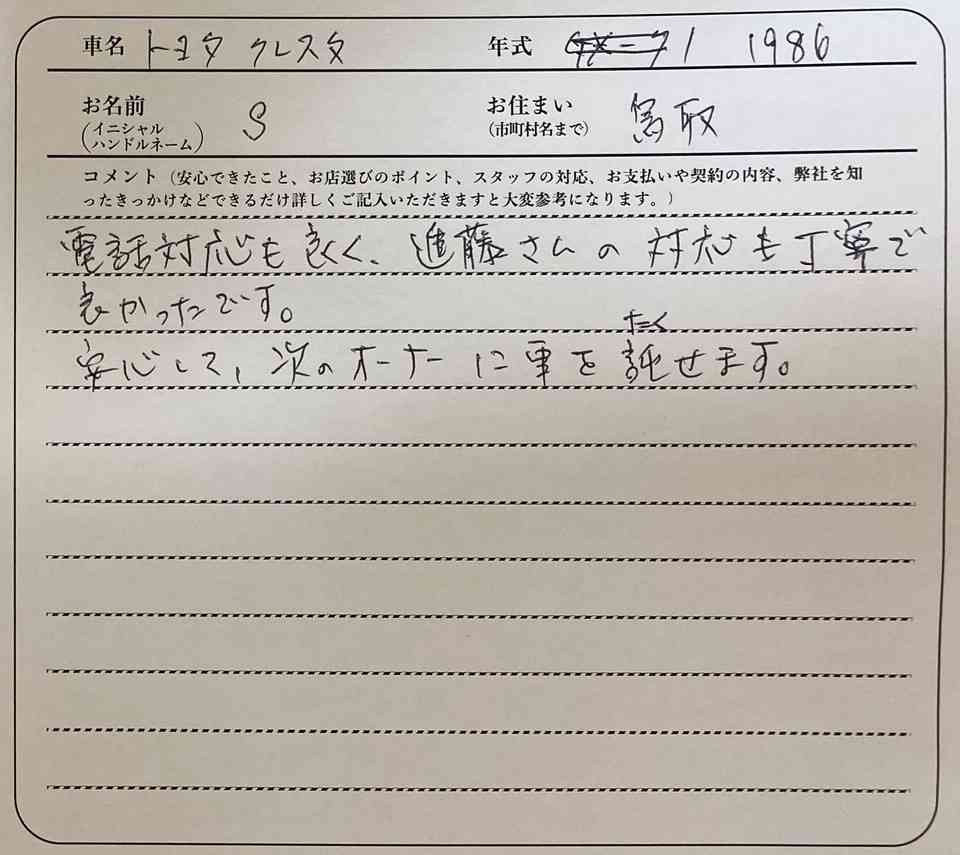 車名 トヨタ クレスタ 年式 1986
お名前 (イニシャル ハンドルネーム) S お住まい (市町村名まで) 鳥取
コメント（安心できたこと、お店選びのポイント、スタッフの対応、お支払いや契約の内容、弊社を知
ったきっかけなどできるだけ詳しくご記入いただきますと大変参考になります。）
電話対応も良く、進藤さんの対応も丁寧で
良かったです。
たく
安心して、次のオーナーに車を託せます。